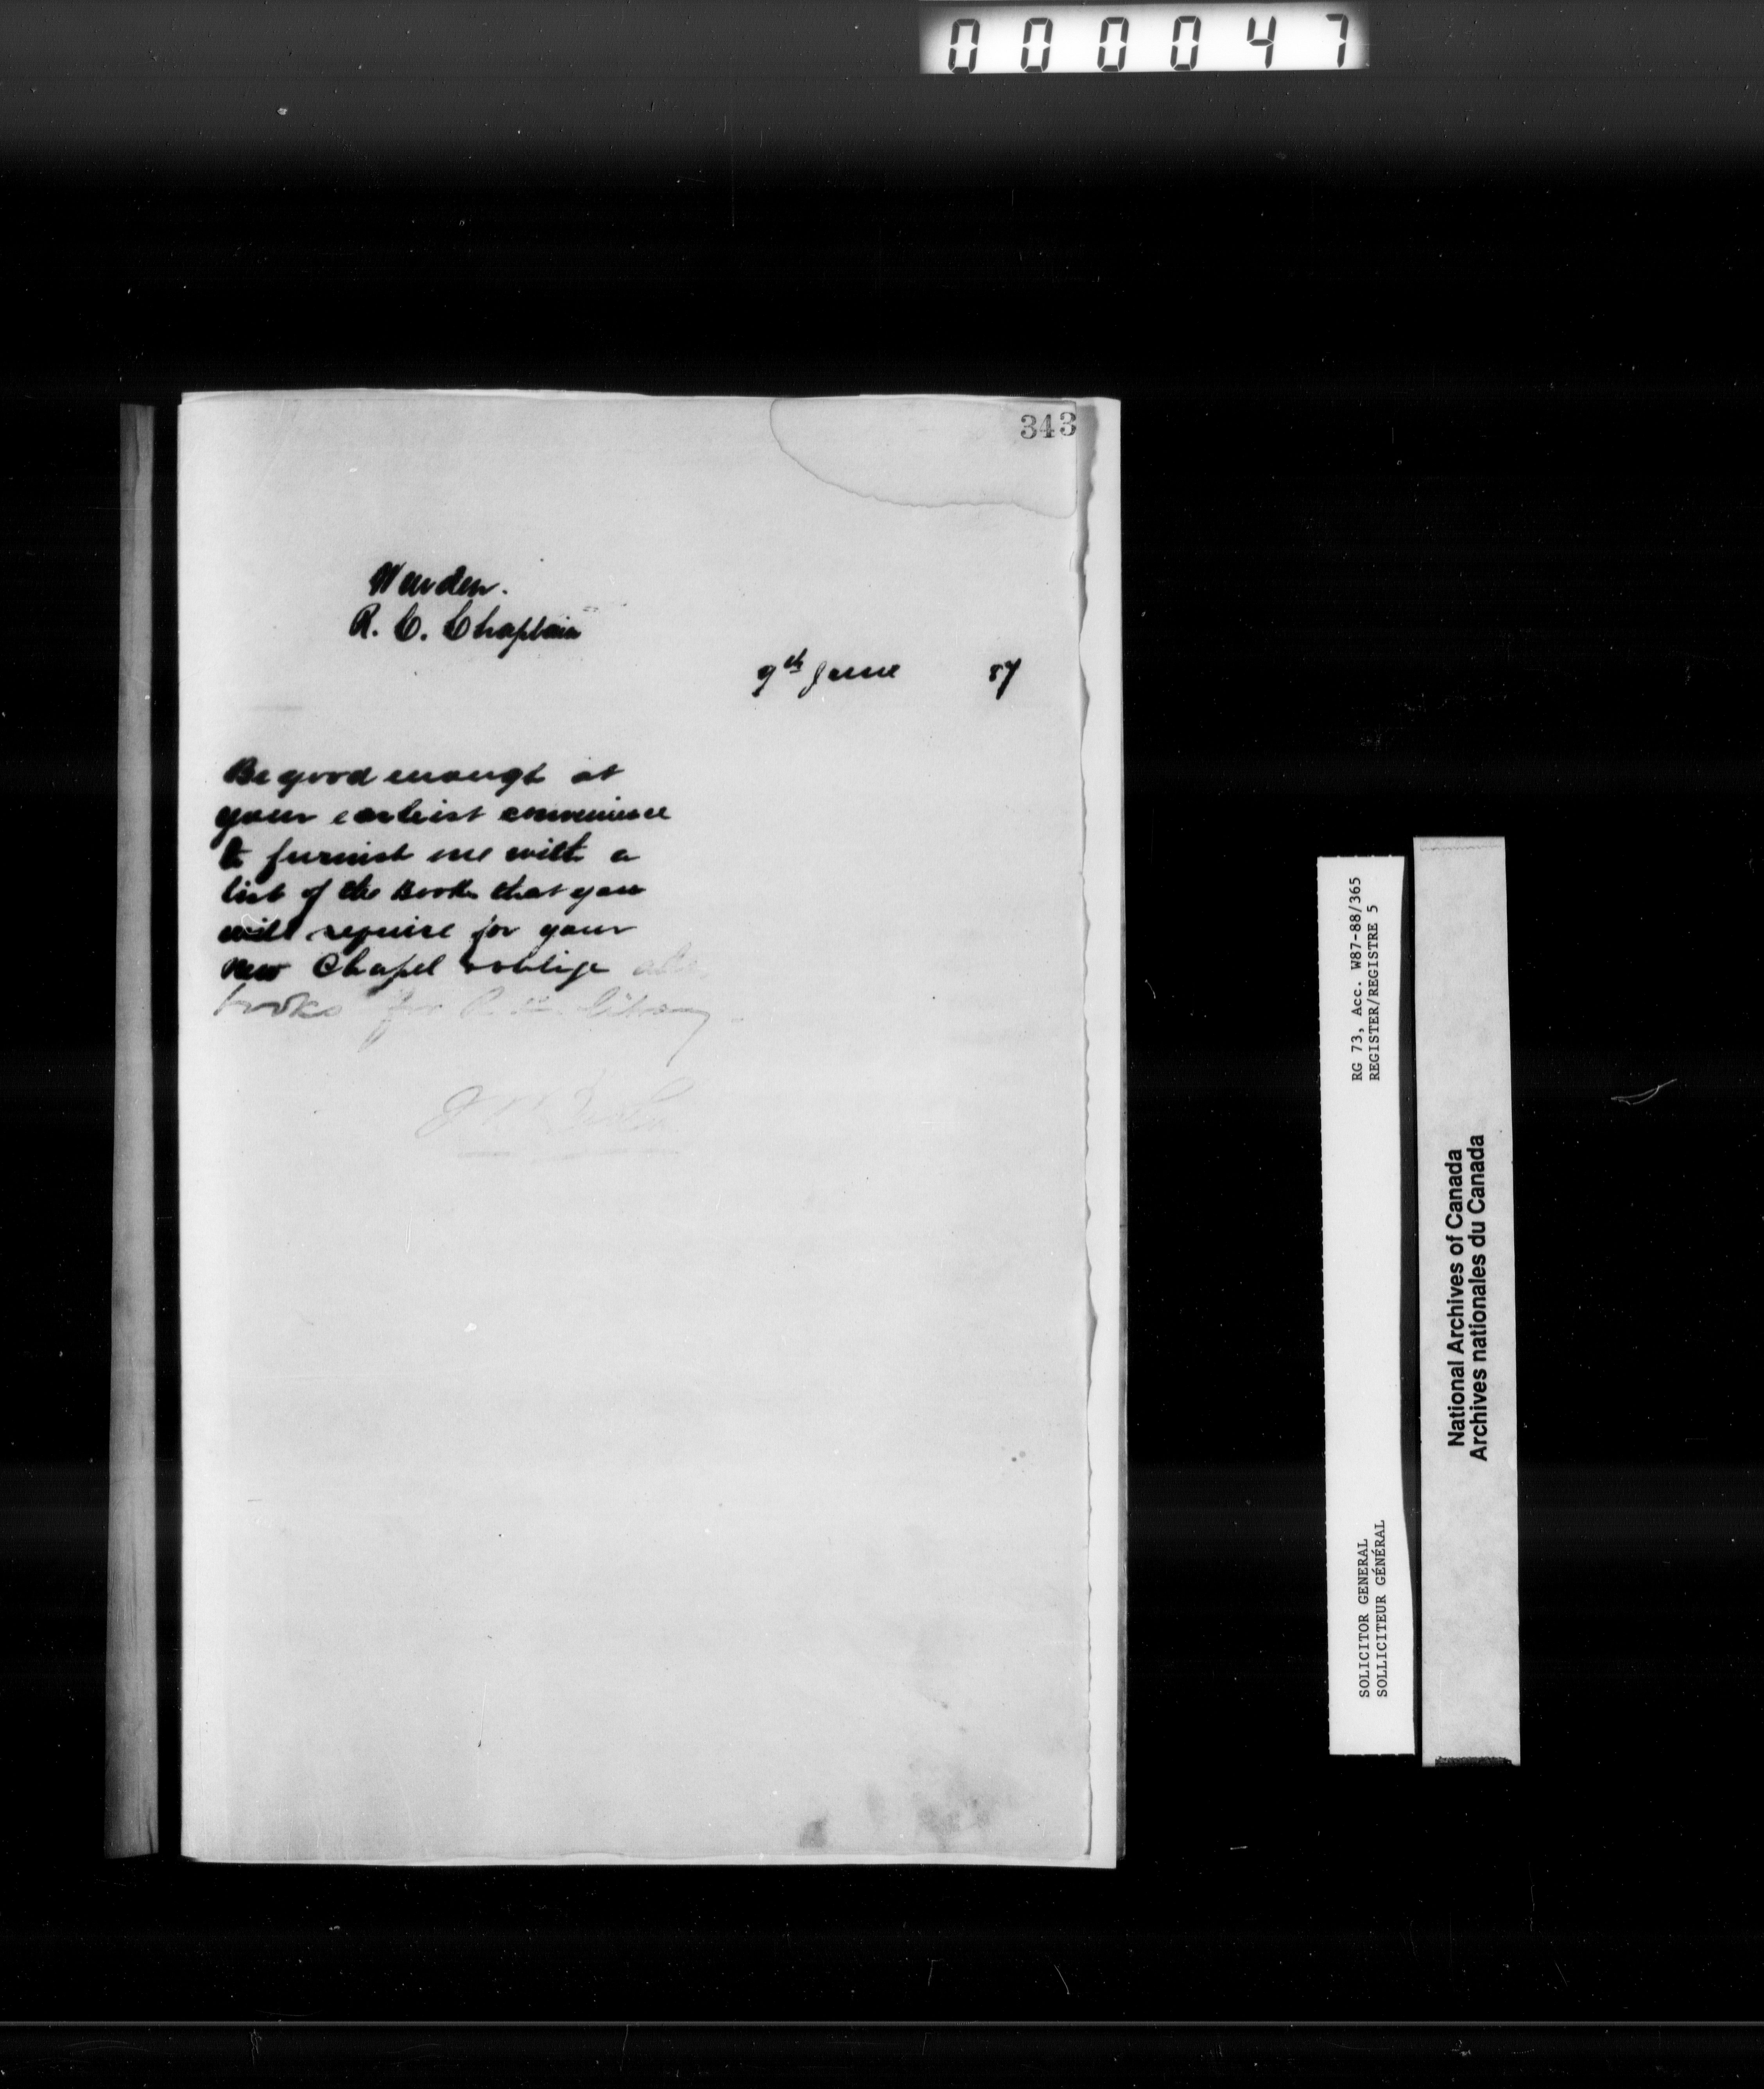 000047
343
Warden.
R. C. Chaplain
9th June 87
Be good enough at
your earliest convenience
to furnish me with a
list of the Books that you
will require for your
new Chapel & oblige also
books for R. C. library.
RG 73, Acc. W87-88/365
REGISTER/REGISTRE 5
SOLICITOR GENERAL
SOLLICITEUR GÉNÉRAL
National Archives of Canada
Archives nationales du Canada